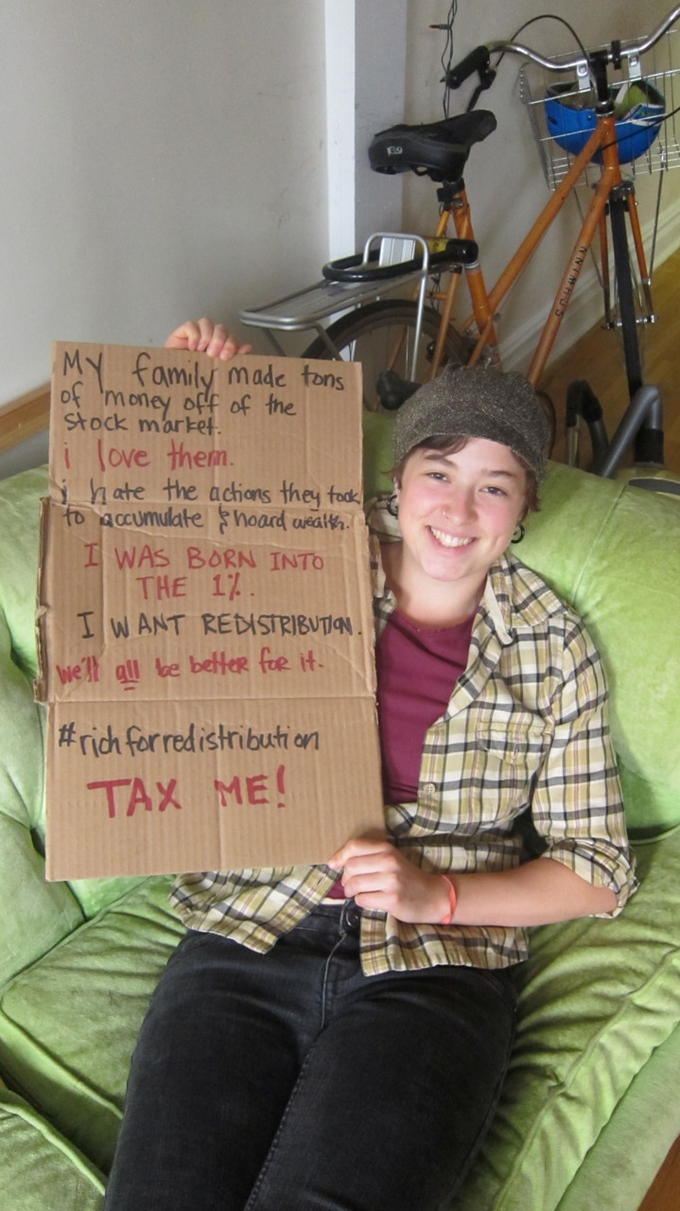 My family made tons
of money off of the
stock market.
i love them.
i hate the actions they took
to accumulate & hoard wealth.
I WAS BORN INTO
THE 1%.
I WANT REDISTRIBUTION.
we'll all be better for it.
#richforredistribution
TAX ME!
SCHWINN